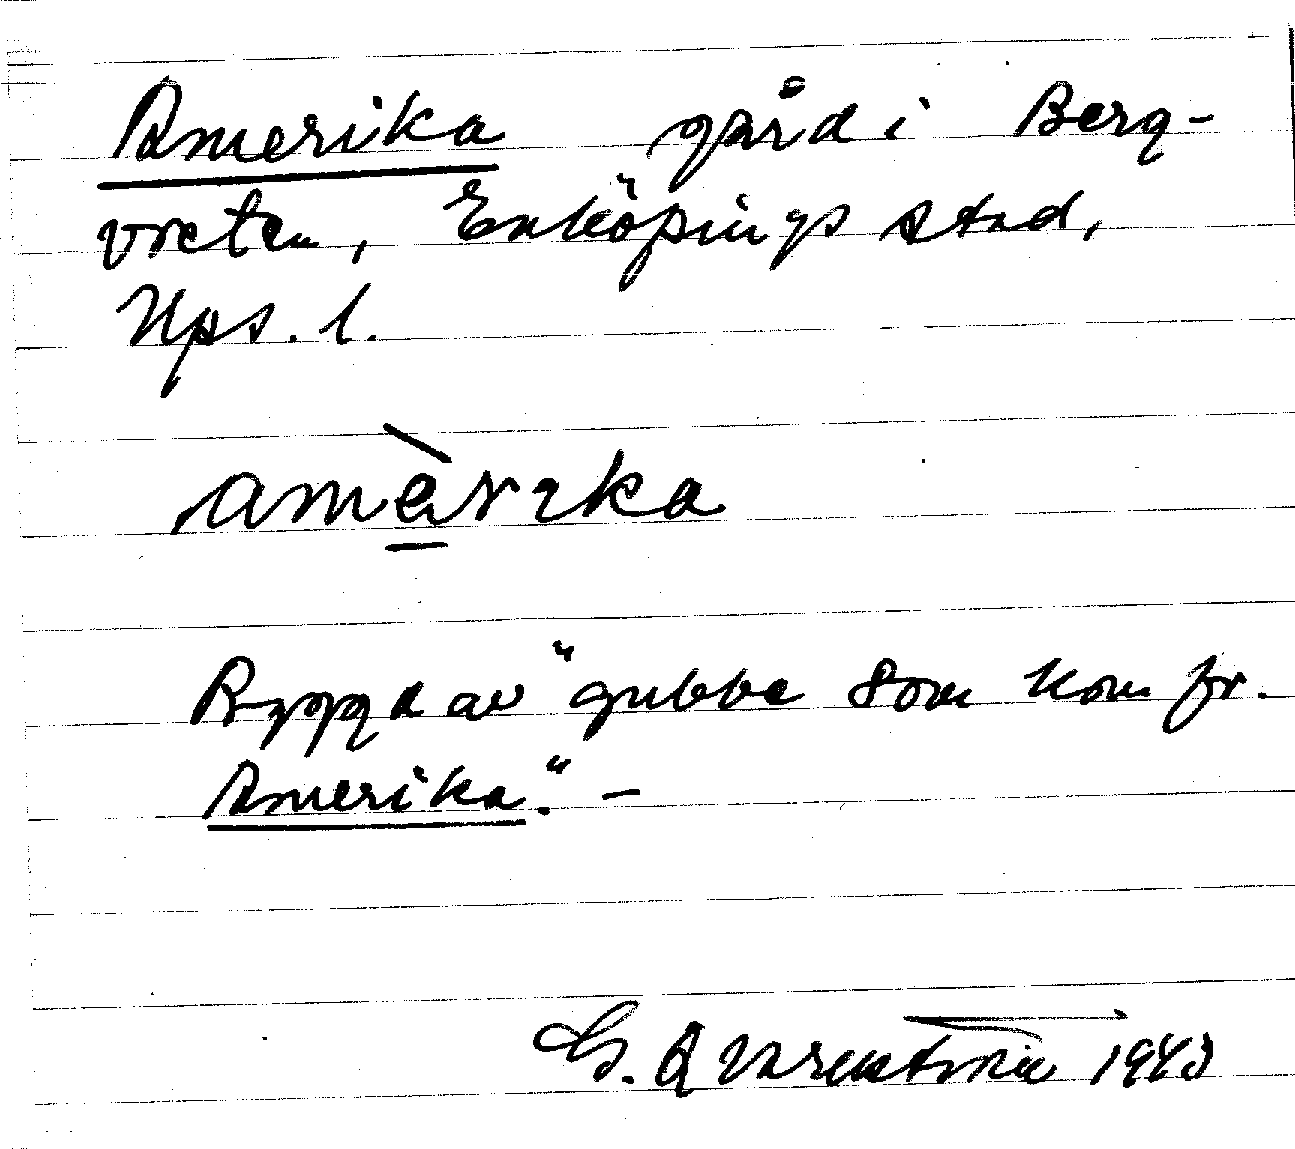 Amerika gård i Berg-
vreten, Enköpings stad,
Ups. l.
amèrika
Byggd av "gubbe som kom fr.
Amerika." –
G. Qvarnström 1943